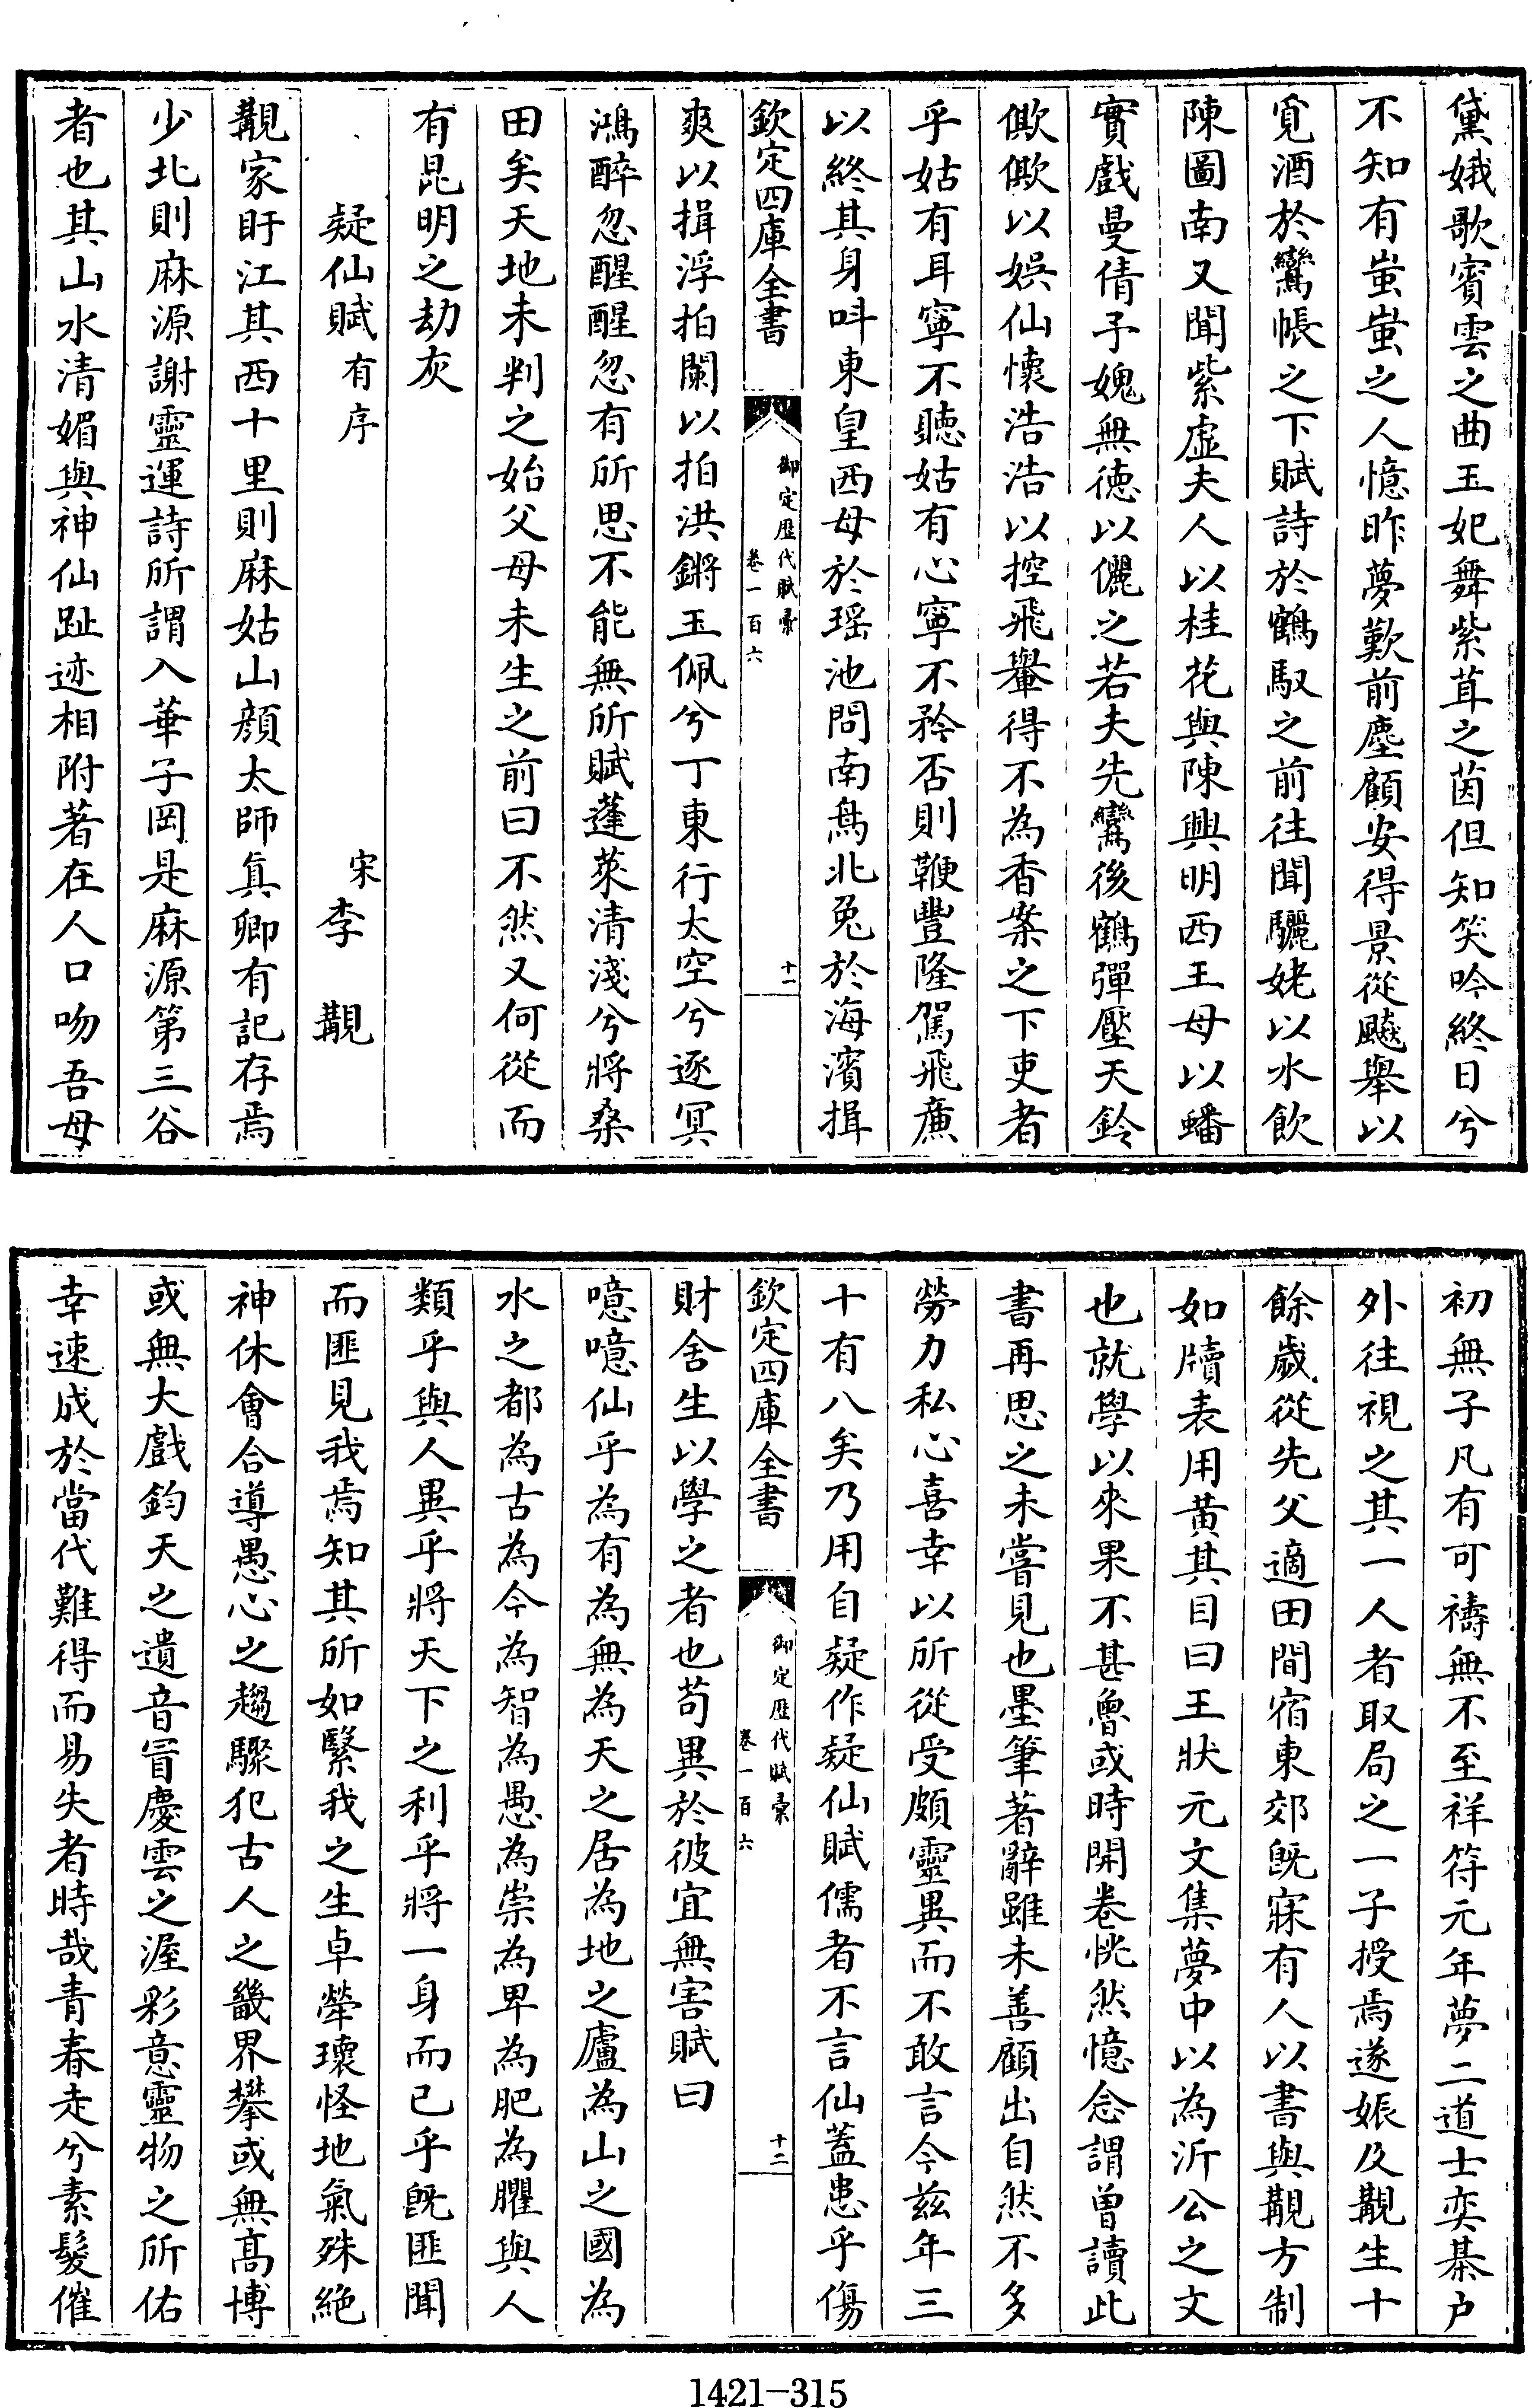 黛娥歌賓雲之曲玉妃舞紫茸之茵但知笑吟終日兮
不知有蚩蚩之人憶昨夢歎前塵顧安得景從飈舉以
覓酒於鸞帳之下賦詩於鶴馭之前往聞驪姥以水飲
陳圖南又聞紫虛夫人以桂花與陳興明西王母以蟠
實戲曼倩子媿無德以儷之若夫先鸞後鶴彈壓天鈴
僛僛以娛仙懷浩浩以控飛轝得不為香案之下吏者
乎姑有耳寧不聽姑有心寧不矜否則鞭豐隆駕飛廉
以終其身呌東皇西母於瑶池問南烏北兔於海濱揖
欽定四庫全書
御定歷代賦彙
卷一百六
十一
爽以揖浮拍闌以拍洪鏘玉佩兮丁東行太空兮逐冥
鴻醉忽醒醒忽有所思不能無所賦蓬萊清淺兮將桑
田矣天地未判之始父母未生之前曰不然又何從而
有昆明之劫灰
疑仙賦有序
宋李覯
覯家盱江其西十里則麻姑山顔太師真卿有記存焉
少北則麻源謝靈運詩所謂入華子岡是麻源第三谷
者也其山水清媚與神仙趾迹相附著在人口吻吾母
初無子凡有可禱無不至祥符元年夢二道士奕棊户
外往視之其一人者取局之一子授焉遂娠及覯生十
餘歲從先父適田間宿東郊既寐有人以書與覯方制
如牘表用黃其目曰王狀元文集夢中以為沂公之文
也就學以來果不甚魯或時開卷恍然憶念謂曽讀此
書再思之未嘗見也墨筆著辭雖未善顧出自然不多
勞力私心喜幸以所從受頗靈異而不敢言今兹年三
十有八矣乃用自疑作疑仙賦儒者不言仙蓋患乎傷
欽定四庫全書
御定歷代賦彙
卷一百六
十二
財舍生以學之者也苟異於彼宜無害賦曰
噫噫仙乎為有為無為天之居為地之廬為山之國為
水之都為古為今為智為愚為崇為卑為肥為臞與人
類乎與人異乎將天下之利乎將一身而已乎既匪聞
而匪見我焉知其所如繄我之生卓犖瓌怪地氣殊絶
神休會合導愚心之趨驟犯古人之畿界攀或無高博
或無大戲鈞天之遺音冒慶雲之渥彩意靈物之所佑
幸速成於當代難得而易失者時哉青春走兮素髮催
1421-315